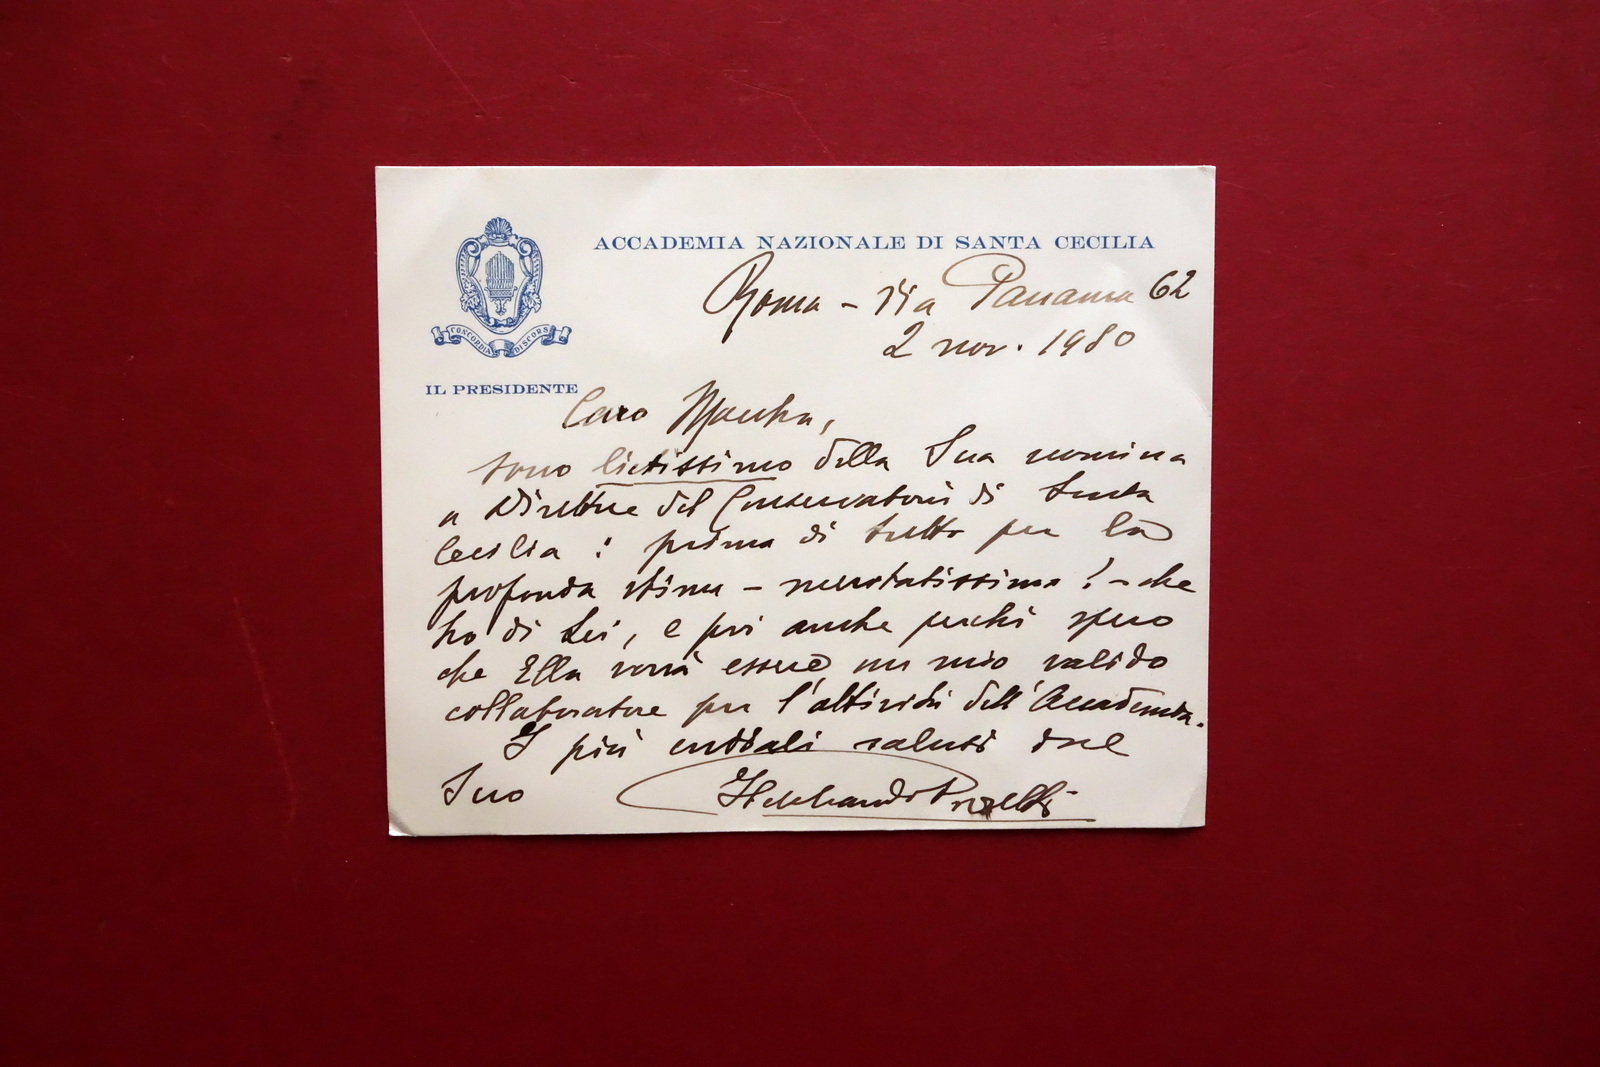 ACCADEMIA NAZIONALE DI SANTA CECILIA
CONCORDIA DISCORS
IL PRESIDENTE
Roma - Via Panama 62
2 nov. 1980
Caro Maestro,
sono lietissimo della Sua nomina
a Direttore del Conservatorio di Santa
Cecilia: prima di tutto per la
profonda stima - meritatissima! - che
ho di Lei, e poi anche perché spero
che Ella vorrà essere un mio valido
collaboratore per l'attività dell'Accademia.
I più cordiali saluti dal
Suo Ildebrando Pizzetti